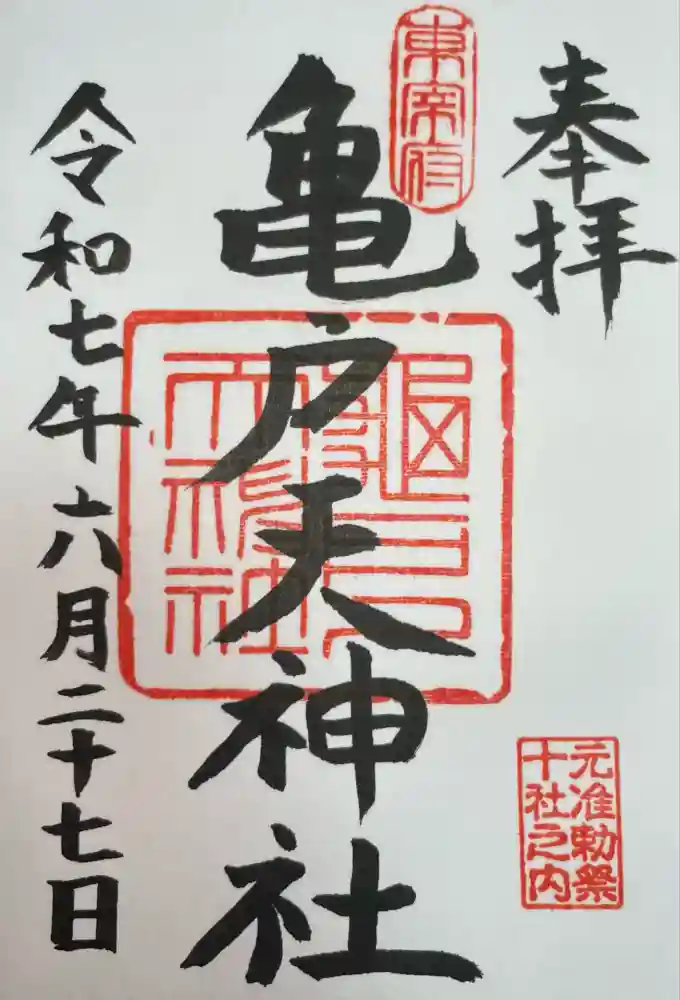 奉拝
東宰府
亀戸天神社
令和七年六月二十七日
元准勅祭
十社之内